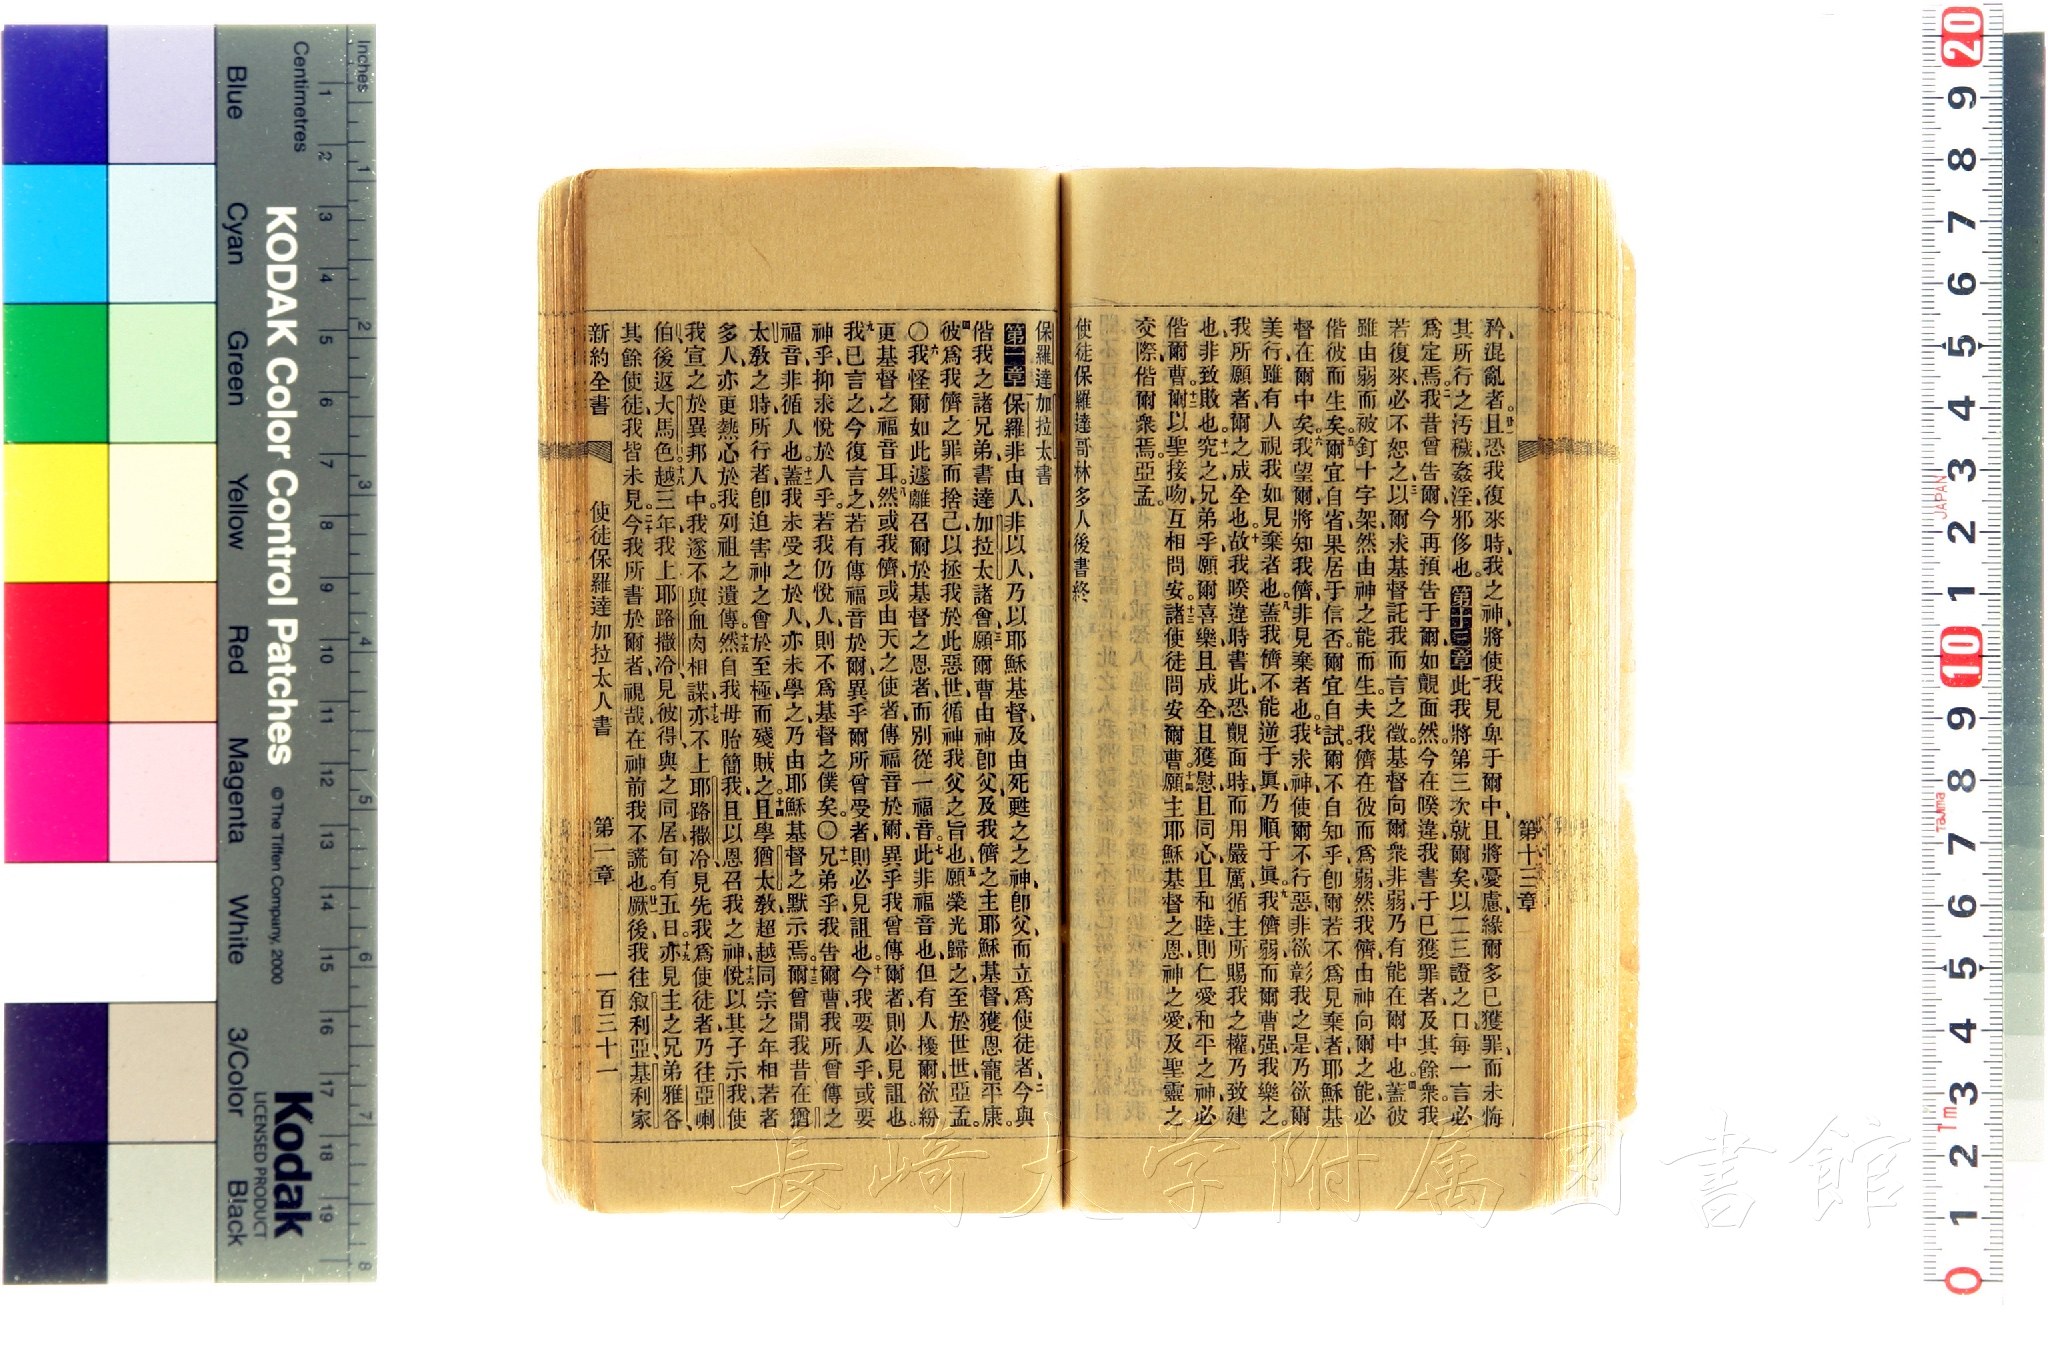 矜混亂者且恐我復來時我之神將使我見卑于爾中且將憂慮緣爾多已獲罪而未悔
其所行之汚穢姦淫邪侈也第十三章此我將第三次就爾矣以二三證之口每一言必
爲定焉我昔曾告爾今再預告于爾如覿面然今在暌違我書于已獲罪者及其餘衆我
若復來必不恕之以爾求基督託我而言之徵基督向爾衆非弱乃有能在爾中也蓋彼
雖由弱而被釘十字架然由神之能而生夫我儕在彼而爲弱然我儕由神向爾之能必
偕彼而生矣爾宜自省果居于信否爾宜自試爾不自知乎卽爾若不爲見棄者耶穌基
督在爾中矣我望爾將知我儕非見棄者也我求神使爾不行惡非欲彰我之是乃欲爾
美行雖有人視我如見棄者也蓋我儕不能逆于眞乃順于眞我儕弱而爾曹强我樂之
我所願者爾之成全也故我暌違時書此恐覿面時而用嚴厲循主所賜我之權乃致建
也非致敗也究之兄弟乎願爾喜樂且成全且獲慰且同心且和睦則仁愛和平之神必
偕爾曹爾以聖接吻互相問安諸使徒問安爾曹願主耶穌基督之恩神之愛及聖靈之
交際偕爾衆焉亞孟
使徒保羅達哥林多人後書終
第十三章
保羅達加拉太書
第一章保羅非由人非以人乃以耶穌基督及由死甦之之神卽父而立爲使徒者今與
偕我之諸兄弟書達加拉太諸會願爾曹由神卽父及我儕之主耶穌基督獲恩寵平康
彼爲我儕之罪而捨己以拯我於此惡世循神我父之旨也願榮光歸之至於世世亞孟
〇我怪爾如此遽離召爾於基督之恩者而別從一福音此非福音也但有人擾爾欲紛
更基督之福音耳然或我儕或由天之使者傳福音於爾異乎我曾傳爾者則必見詛也
我已言之今復言之若有傳福音於爾異乎爾所曾受者則必見詛也今我要人乎或要
神乎抑求悅於人乎若我仍悅人則不爲基督之僕矣〇兄弟乎我告爾曹我所曾傳之
福音非循人也蓋我未受之於人亦未學之乃由耶穌基督之默示焉爾曾聞我昔在猶
太敎之時所行者卽迫害神之會於至極而殘賊之且學猶太敎超越同宗之年相若者
多人亦更熱心於我列祖之遺傳然自我母胎簡我且以恩召我之神悅以其子示我使
我宣之於異邦人中我遂不與血肉相謀亦不上耶路撒冷見先我爲使徒者乃往亞喇
伯後返大馬色越三年我上耶路撒冷見彼得與之同居旬有五日亦見主之兄弟雅各
其餘使徒我皆未見今我所書於爾者視哉在神前我不謊也厥後我往敘利亞基利家
新約全書 使徒保羅達加拉太人書 第一章 一百三十一
KODAK Color Control Patches © The Tiffen Company, 2000
Kodak
LICENSED PRODUCT
Inches
Centimetres
Blue Cyan Green Yellow Red Magenta White 3/Color Black
1 2 3 4 5 6 7 8 9 10 11 12 13 14 15 16 17 18 19
1 2 3 4 5 6 7 8
20 9 8 7 6 5 4 3 2 1 10 9 8 7 6 5 4 3 2 1 0
JAPAN
Tajima
長崎大学附属図書館